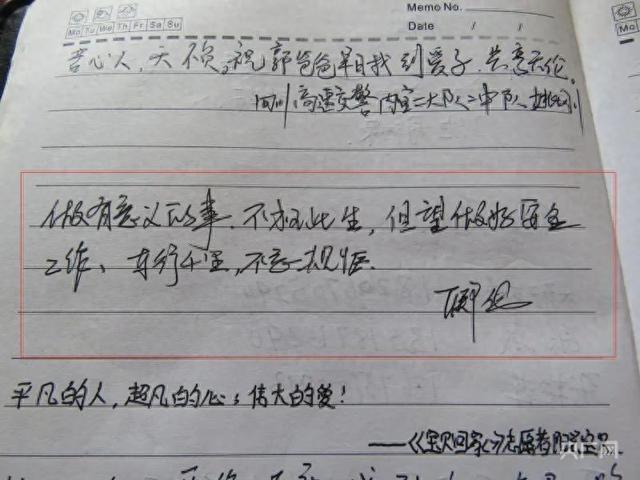 Memo No.
Mo Tu We Th Fr Sa Su
Date / /
Mo
苦心人,天不负,祝郭爸爸早日找到爱子,共享天伦。
四川高速交警内宜二大队二中队
做有意义的事,不枉此生,但望做好安全
工作,车行千里,不忘
平凡的人,超凡的心,伟大的爱!
——《宝贝回家》志愿者